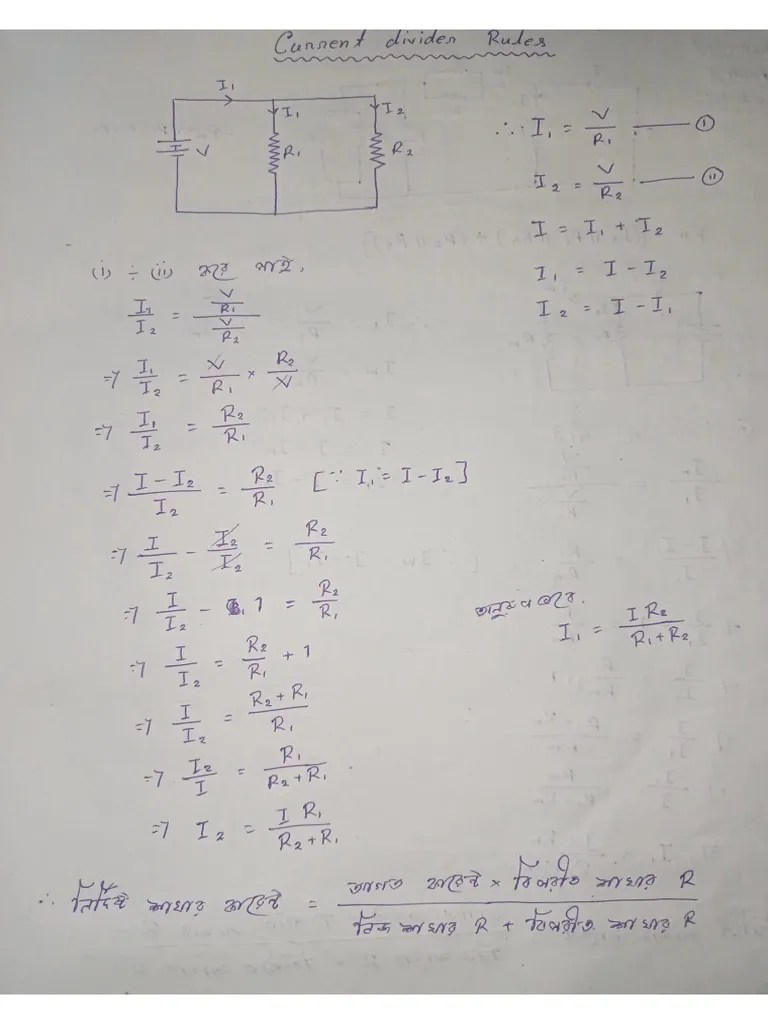 Current divider Rules
I₁
I₁
I₂
I V
R₁
R₂
∴ I₁ = V/R₁ —— (i)
I₂ = V/R₂ —— (ii)
I = I₁ + I₂
I₁ = I - I₂
I₂ = I - I₁
(i) ÷ (ii) করে পাই,
I₁/I₂ = (V/R₁)/(V/R₂)
⇒ I₁/I₂ = V/R₁ × R₂/V
⇒ I₁/I₂ = R₂/R₁
⇒ (I - I₂)/I₂ = R₂/R₁ [∵ I₁ = I - I₂]
⇒ I/I₂ - I₂/I₂ = R₂/R₁
⇒ I/I₂ - 1 = R₂/R₁
অনুরূপ ভাবে.
I₁ = I R₂/(R₁ + R₂)
⇒ I/I₂ = R₂/R₁ + 1
⇒ I/I₂ = (R₂ + R₁)/R₁
⇒ I₂/I = R₁/(R₂ + R₁)
⇒ I₂ = I R₁/(R₂ + R₁)
∴ নির্দিষ্ট শাখার কারেন্ট = আগত কারেন্ট × বিপরীত শাখার R / নিজ শাখার R + বিপরীত শাখার R